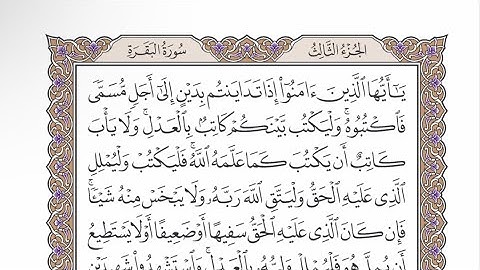 الجُزْءُ الثَّالِثُ
سُورَةُ البَقَرَةِ
يَـٰٓأَيُّهَا ٱلَّذِينَ ءَامَنُوٓا۟ إِذَا تَدَايَنتُم بِدَيْنٍ إِلَىٰٓ أَجَلٍ مُّسَمًّى
فَٱكْتُبُوهُ ۚ وَلْيَكْتُب بَّيْنَكُمْ كَاتِبٌۢ بِٱلْعَدْلِ ۚ وَلَا يَأْبَ
كَاتِبٌ أَن يَكْتُبَ كَمَا عَلَّمَهُ ٱللَّهُ ۚ فَلْيَكْتُبْ وَلْيُمْلِلِ
ٱلَّذِى عَلَيْهِ ٱلْحَقُّ وَلْيَتَّقِ ٱللَّهَ رَبَّهُۥ وَلَا يَبْخَسْ مِنْهُ شَيْـًٔا ۚ
فَإِن كَانَ ٱلَّذِى عَلَيْهِ ٱلْحَقُّ سَفِيهًا أَوْ ضَعِيفًا أَوْ لَا يَسْتَطِيعُ
أَن يُمِلَّ هُوَ فَلْيُمْلِلْ وَلِيُّهُۥ بِٱلْعَدْلِ ۚ وَٱسْتَشْهِدُوا۟ شَهِيدَيْنِ